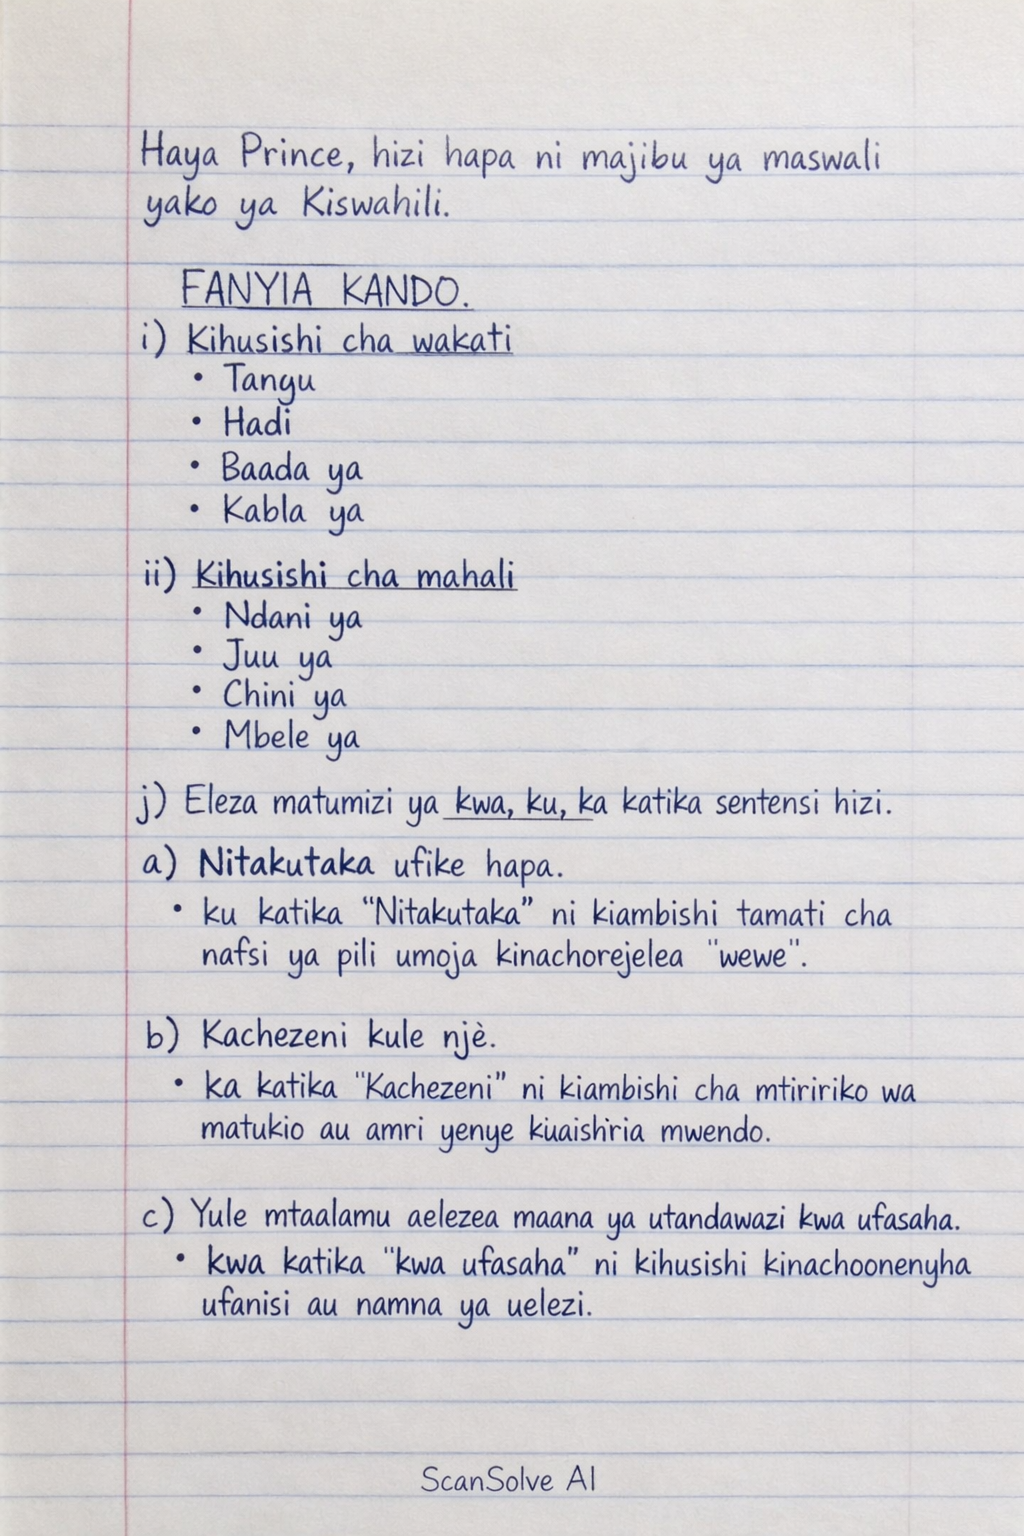 Haya Prince, hizi hapa ni majibu ya maswali
yako ya Kiswahili.
FANYIA KANDO.
i) Kihusishi cha wakati
• Tangu
• Hadi
• Baada ya
• Kabla ya
ii) Kihusishi cha mahali
• Ndani ya
• Juu ya
• Chini ya
• Mbele ya
j) Eleza matumizi ya kwa, ku, ka katika sentensi hizi.
a) Nitakutaka ufike hapa.
• ku katika "Nitakutaka" ni kiambishi tamati cha
nafsi ya pili umoja kinachorejelea "wewe".
b) Kachezeni kule njè.
• ka katika "Kachezeni" ni kiambishi cha mtiririko wa
matukio au amri yenye kuaishiria mwendo.
c) Yule mtaalamu aelezea maana ya utandawazi kwa ufasaha.
• kwa katika "kwa ufasaha" ni kihusishi kinachoonenyha
ufanisi au namna ya uelezi.
ScanSolve AI